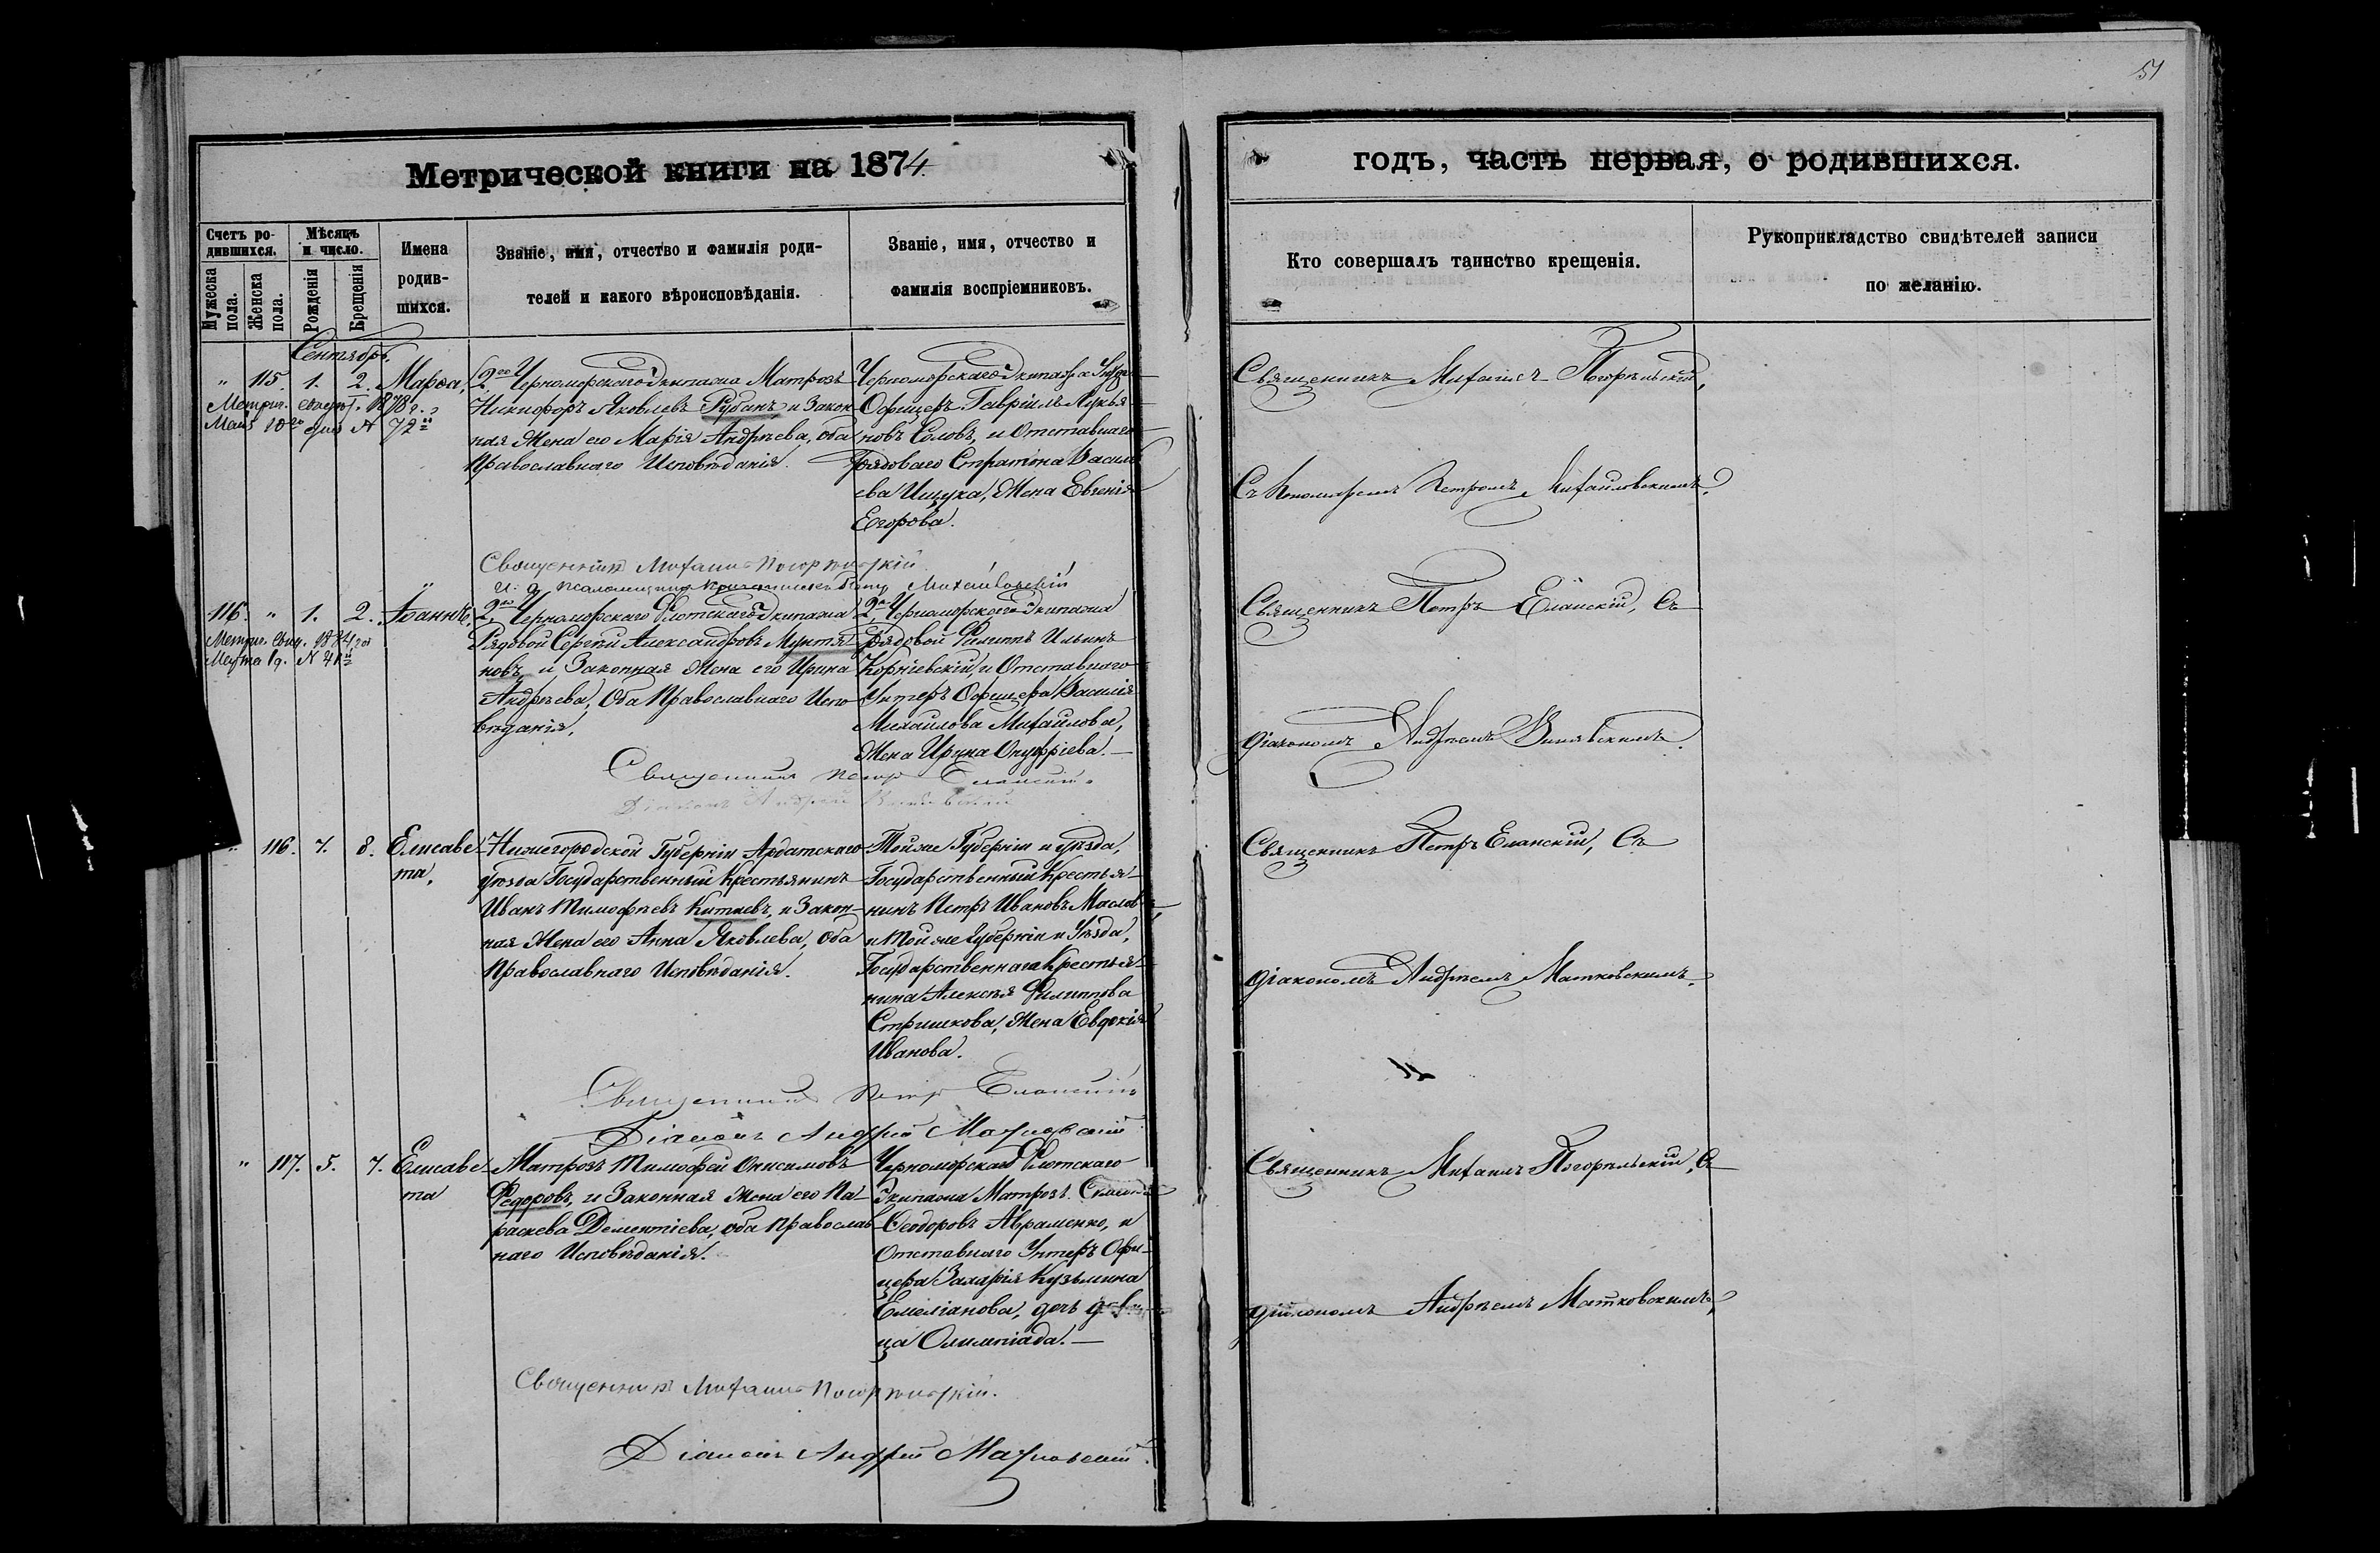 51
Метрической книги на 1874
годъ, часть первая, о родившихся.
Счетъ ро-
дившихся.
Мужеска
пола.
Женска
пола.
Мѣсяцъ
и число.
Рожденія
Крещенія
Имена
родив-
шихся.
Званіе, имя, отчество и фамилія роди-
телей и какого вѣроисповѣданія.
Званіе, имя, отчество и
фамилія воспріемниковъ.
Кто совершалъ таинство крещенія.
Рукоприкладство свидѣтелей записи
по желанію.
Сентябрь.
" 115. 1. 2. Марѳа,
Метрич. 1878 г.
Мая 10го дня № 72
2го Черноморскаго Экипажа Матрозъ
Никифоръ Яковлевъ Рубанъ и Закон-
ная Жена его Марія Андрѣева, оба
Православнаго Исповѣданія.
Черноморскаго Экипажа Унтеръ
Офицеръ Гавріилъ Лукья-
новъ Соловъ, и Отставнаго
Рядоваго Стратона Василь
ева Ищука, Жена Евгенія
Егорова.
Священникъ Михаилъ Погорѣльскій,
Съ Петромъ Михайловскимъ.
Священникъ Михаилъ Погорѣльскій
И. д. Михайловскій
116. " 1. 2. Іоаннъ,
Метрич. свид.
Марта № 41
2го Черноморскаго Флотскаго Экипажа
Рядовой Сергѣй Александровъ Мунтя-
новъ, и Законная Жена его Ирина
Андрѣева, Оба Православнаго Испо
вѣданія,
2го Черноморскаго Экипажа
Рядовой Филиппъ Ильинъ
Корніевскій, и Отставнаго
Унтеръ Офицера Василія
Михайлова Михайлова,
Жена Ирина Онуфріева.
Священникъ Петръ Еланскій, Съ
Діакономъ Андреемъ
Священникъ Петръ Еланскій
Діаконъ Андрей
" 116. 7. 8. Елисаве-
та,
Нижегородской Губерніи Ардатскаго
уѣзда Государственный Крестьянинъ
Иванъ Тимофѣевъ Китаевъ, и Закон-
ная Жена его Анна Яковлева, Оба
Православнаго Исповѣданія.
Тойже Губерніи и уѣзда,
Государственный Крестья-
нинъ Петръ Ивановъ Масловъ,
и Той же Губерніи и Уѣзда,
Государственнаго Крестья-
нина Алексѣя Филиппова
Стришкова, Жена Евдокія
Иванова.
Священникъ Петръ Еланскій, Съ
Діакономъ Андреемъ Матковскимъ.
Священникъ Петръ Еланскій
Діаконъ Андрей Матковскій
" 117. 5. 7. Елисаве-
та
Матрозъ Тимофей Онисимовъ
Федоровъ, и Законная Жена его Па-
раскева Дементіева, оба Православ
наго Исповѣданія.
Черноморскаго Флотскаго
Экипажа Матрозъ
Ѳеодоровъ Авраменко, и
Отставнаго Унтеръ Офи-
цера Захарія Кузьмина
Емеліанова, дочь дѣви-
ца Олимпіада.
Священникъ Михаилъ Погорѣльскій, Съ
Діакономъ Андреемъ Матковскимъ,
Священникъ Михаилъ Погорѣльскій.
Діаконъ Андрей Матковскій